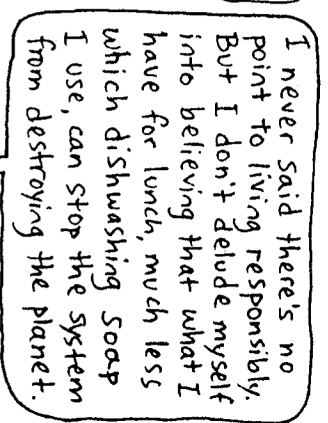 I never said there's no
point to living responsibly.
But I don't delude myself
into believing that what I
have for lunch, much less
which dishwashing soap
I use, can stop the system
from destroying the planet.